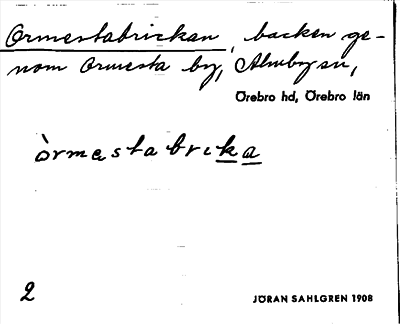 Ormestabrickan, backen ge-
nom Ormesta by, Almby sn,
Örebro hd, Örebro län
òrmestabrika
2
JÖRAN SAHLGREN 1908